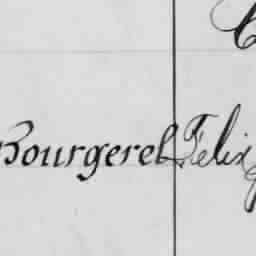 Bourgerel Félix